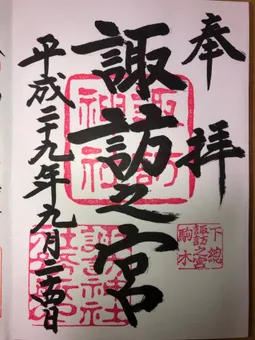 奉拝
下總
諏訪之宮
駒木
諏訪之宮
諏訪
神社
諏訪神社
平成二十九年九月二四日